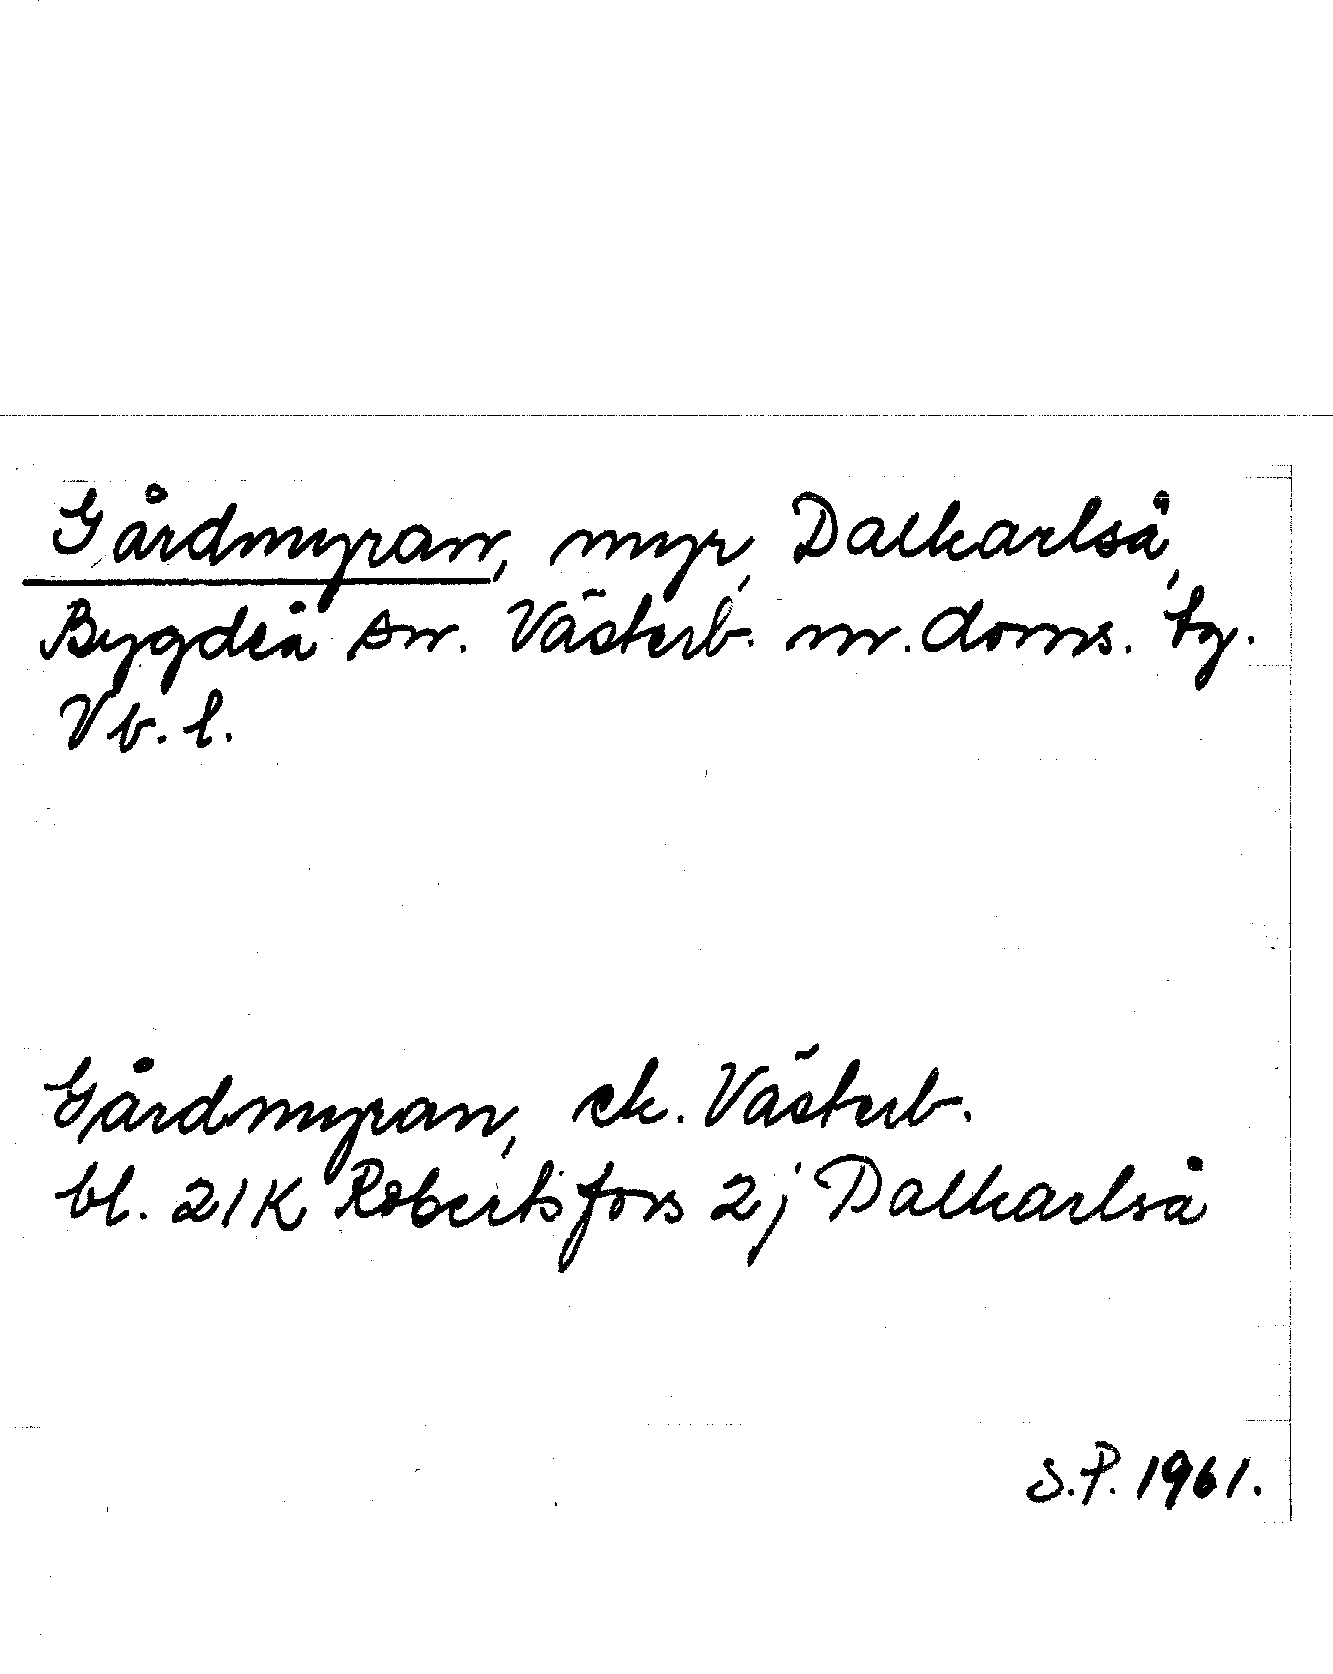 Gårdmyran, myr, Dalkarlså,
Bygdeå sn. Västerb. m. doms. tg.
Vb. l.
Gårdmyran, ek. Västerb.
bl. 21K Robertsfors 2j Dalkarlså
S.P. 1961.